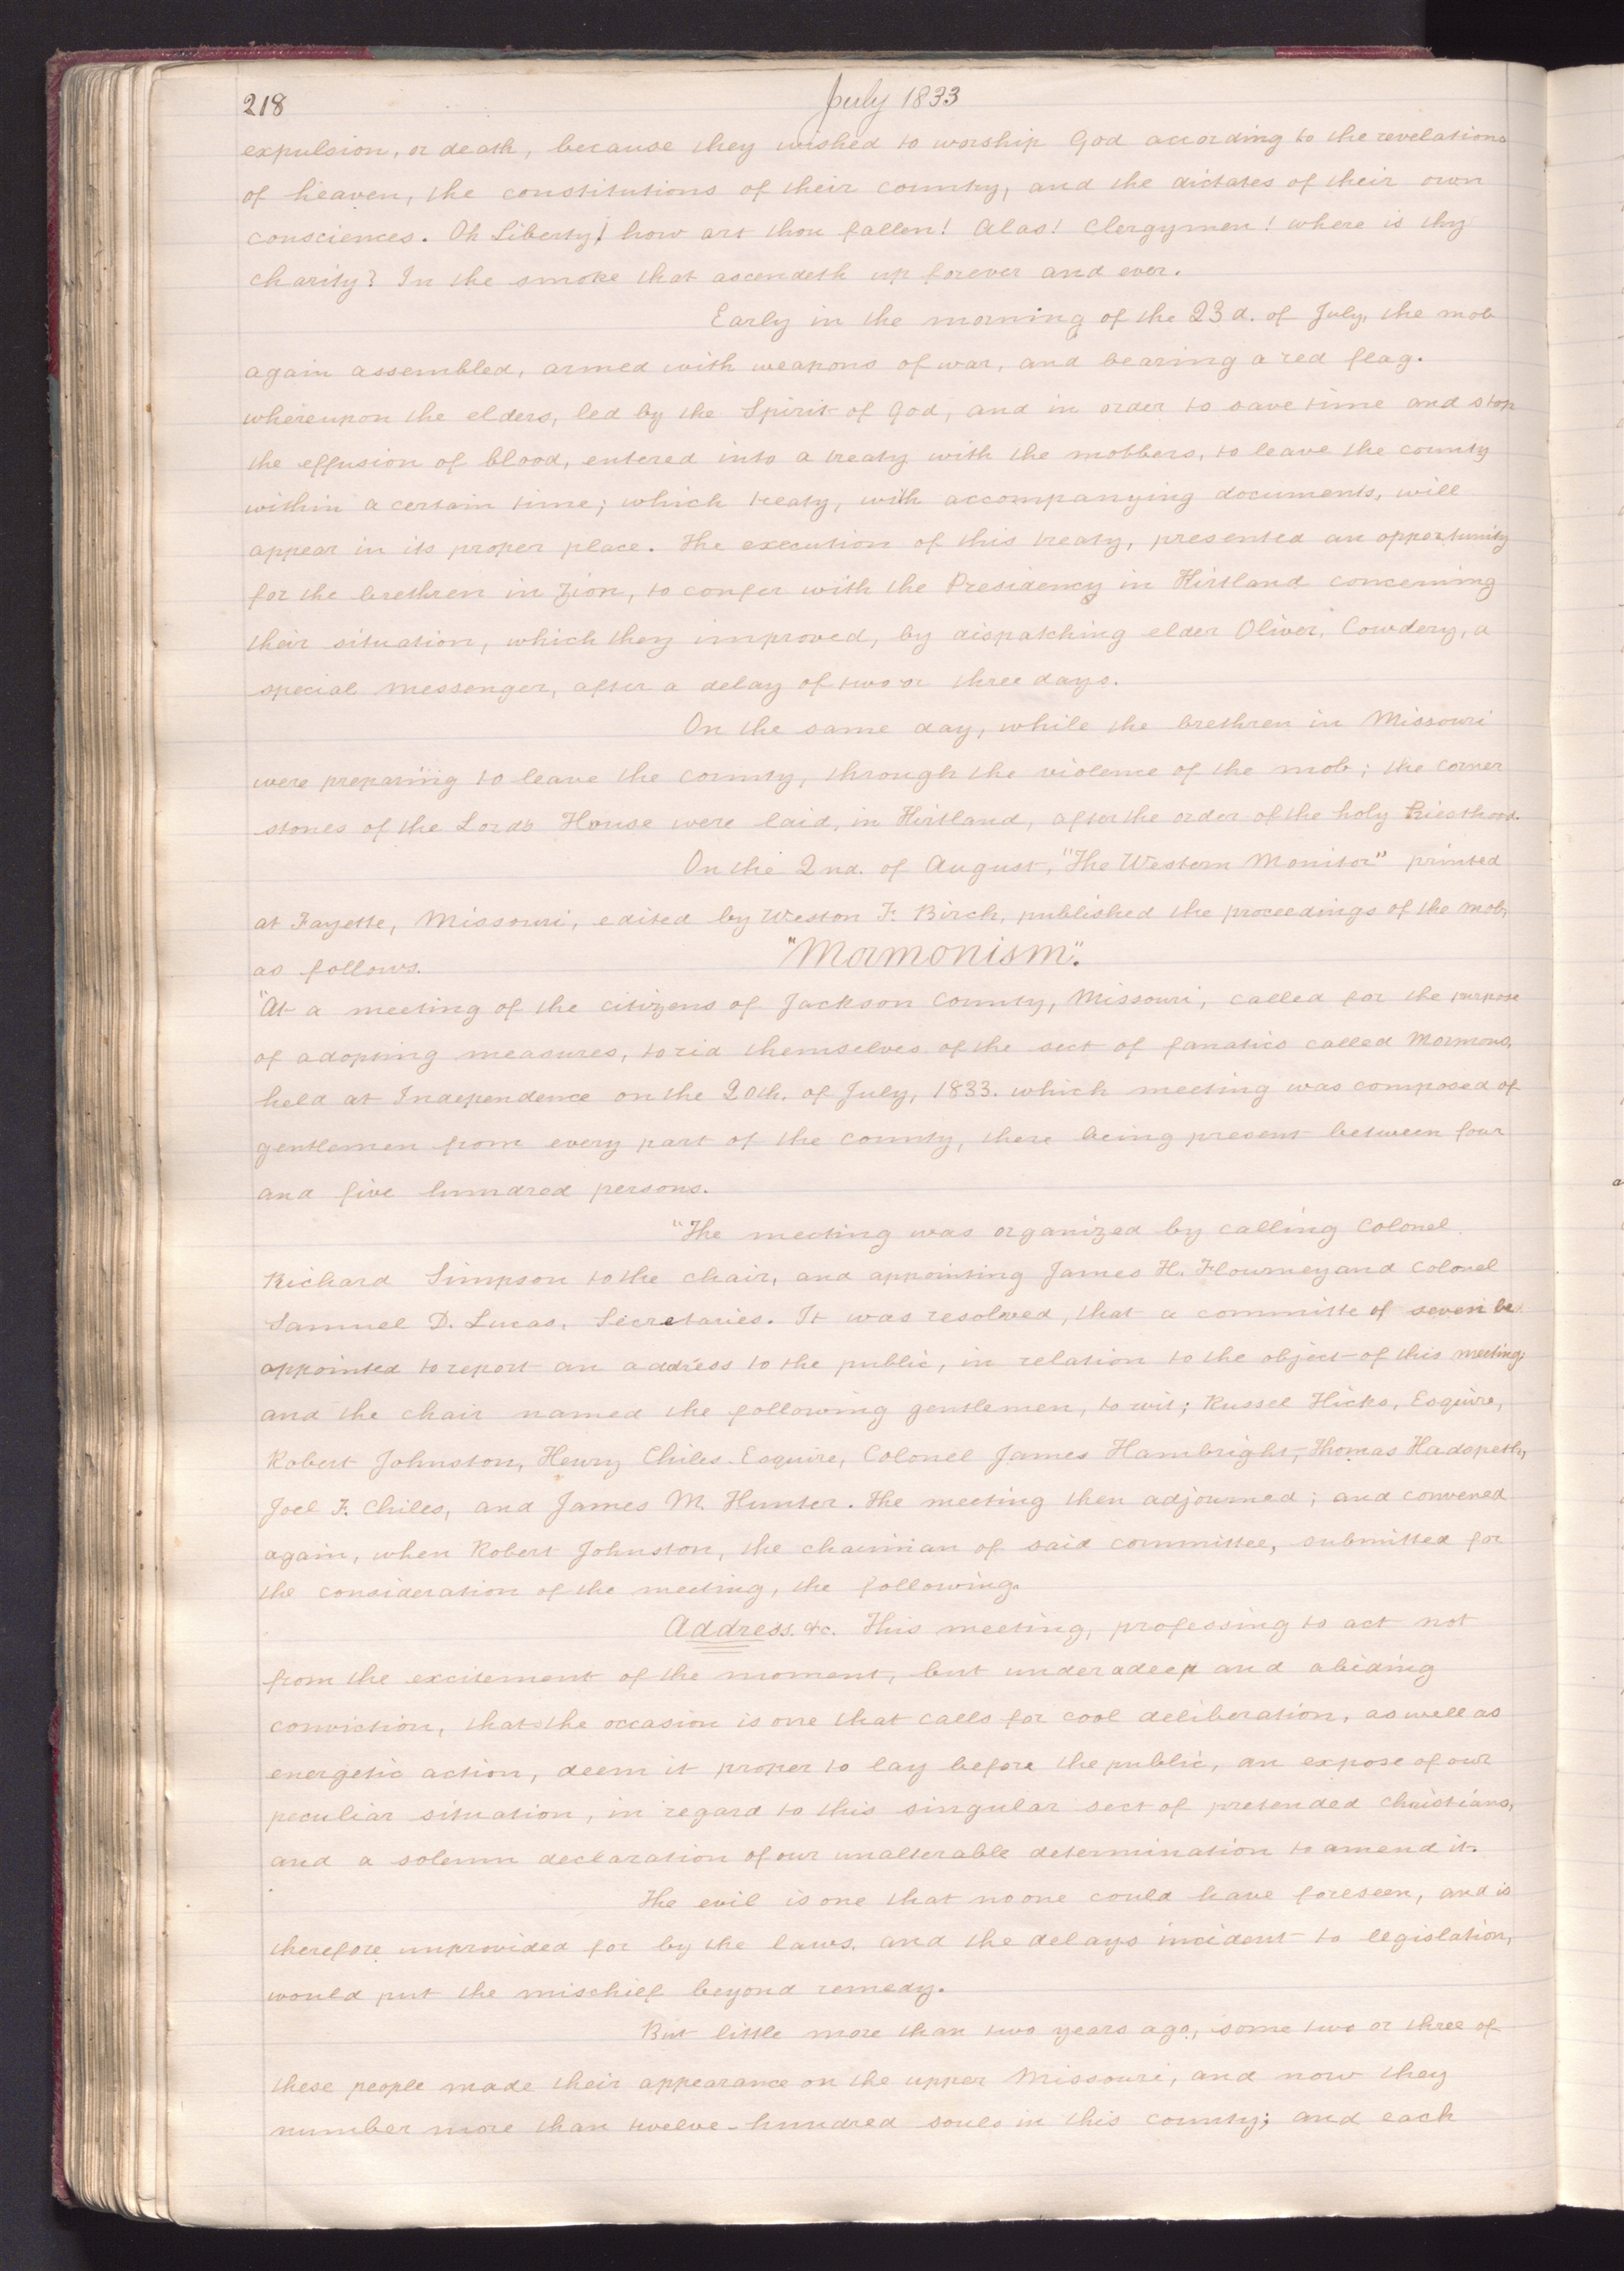 218
July 1833
expulsion, or death, because they wished to worship God according to the revelations
of heaven, the constitutions of their country, and the dictates of their own
consciences. Oh Liberty! how art thou fallen! Alas! Clergymen! where is thy
charity? In the smoke that ascendeth up forever and ever.
Early in the morning of the 23d. of July, the mob
again assembled, armed with weapons of war, and bearing a red flag.
whereupon the elders, led by the Spirit of God, and in order to save time and stop
the effusion of blood, entered into a treaty with the mobbers, to leave the county
within a certain time; which treaty, with accompanying documents, will
appear in its proper place. The execution of this treaty, presented an opportunity
for the brethren in Zion, to confer with the Presidency in Kirtland concerning
their situation, which they improved, by dispatching elder Oliver, Cowdery, a
special messenger, after a delay of two or three days.
On the same day, while the brethren in Missouri
were preparing to leave the county, through the violence of the mob; the corner
stones of the Lords House were laid, in Kirtland, after the order of the holy Priesthood.
On the 2nd. of August, "The Western Monitor" printed
at Fayette, Missouri, edited by Weston F. Birch, published the proceedings of the mob,
as follows.
"Mormonism".
"At a meeting of the citizens of Jackson County, Missouri, called for the purpose
of adopting measures, to rid themselves of the sect of fanatics called Mormons,
held at Independence on the 20th. of July, 1833. which meeting was composed of
gentlemen from every part of the county, there being present between four
and five hundred persons.
"The meeting was organized by calling Colonel
Richard Simpson to the chair, and appointing James H. Flourney and Colonel
Samuel D. Lucas, Secretaries. It was resolved, that a committe of seven be
appointed to report an address to the public, in relation to the object of this meeting;
and the chair named the following gentlemen, to wit; Russel Hicks, Esquire,
Robert Johnston, Henry Chiles Esquire, Colonel James Hambright, Thomas Hadspeth,
Joel F. Chiles, and James M. Hunter. The meeting then adjourned; and convened
again, when Robert Johnston, the chairman of said committee, submitted for
the consideration of the meeting, the following.
Address. &c. This meeting, professing to act not
from the excitement of the moment, but under a deep and abiding
conviction, that the occasion is one that calls for cool deliberation, as well as
energetic action, deem it proper to lay before the public, an expose of our
peculiar situation, in regard to this singular sect of pretended Christians,
and a solemn declaration of our unalterable determination to amend it.
The evil is one that no one could have foreseen, and is
therefore unprovided for by the laws. and the delays incident to legislation,
would put the mischief beyond remedy.
But little more than two years ago, some two or three of
these people made their appearance on the upper Missouri, and now they
number more than twelve-hundred souls in this county; and each